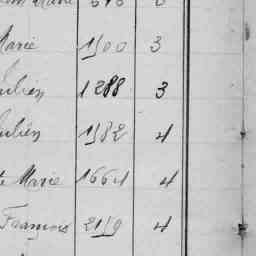 Marie 1500 3
Julien 1288 3
Julien 1582 4
Marie 1664 4
François 2159 4